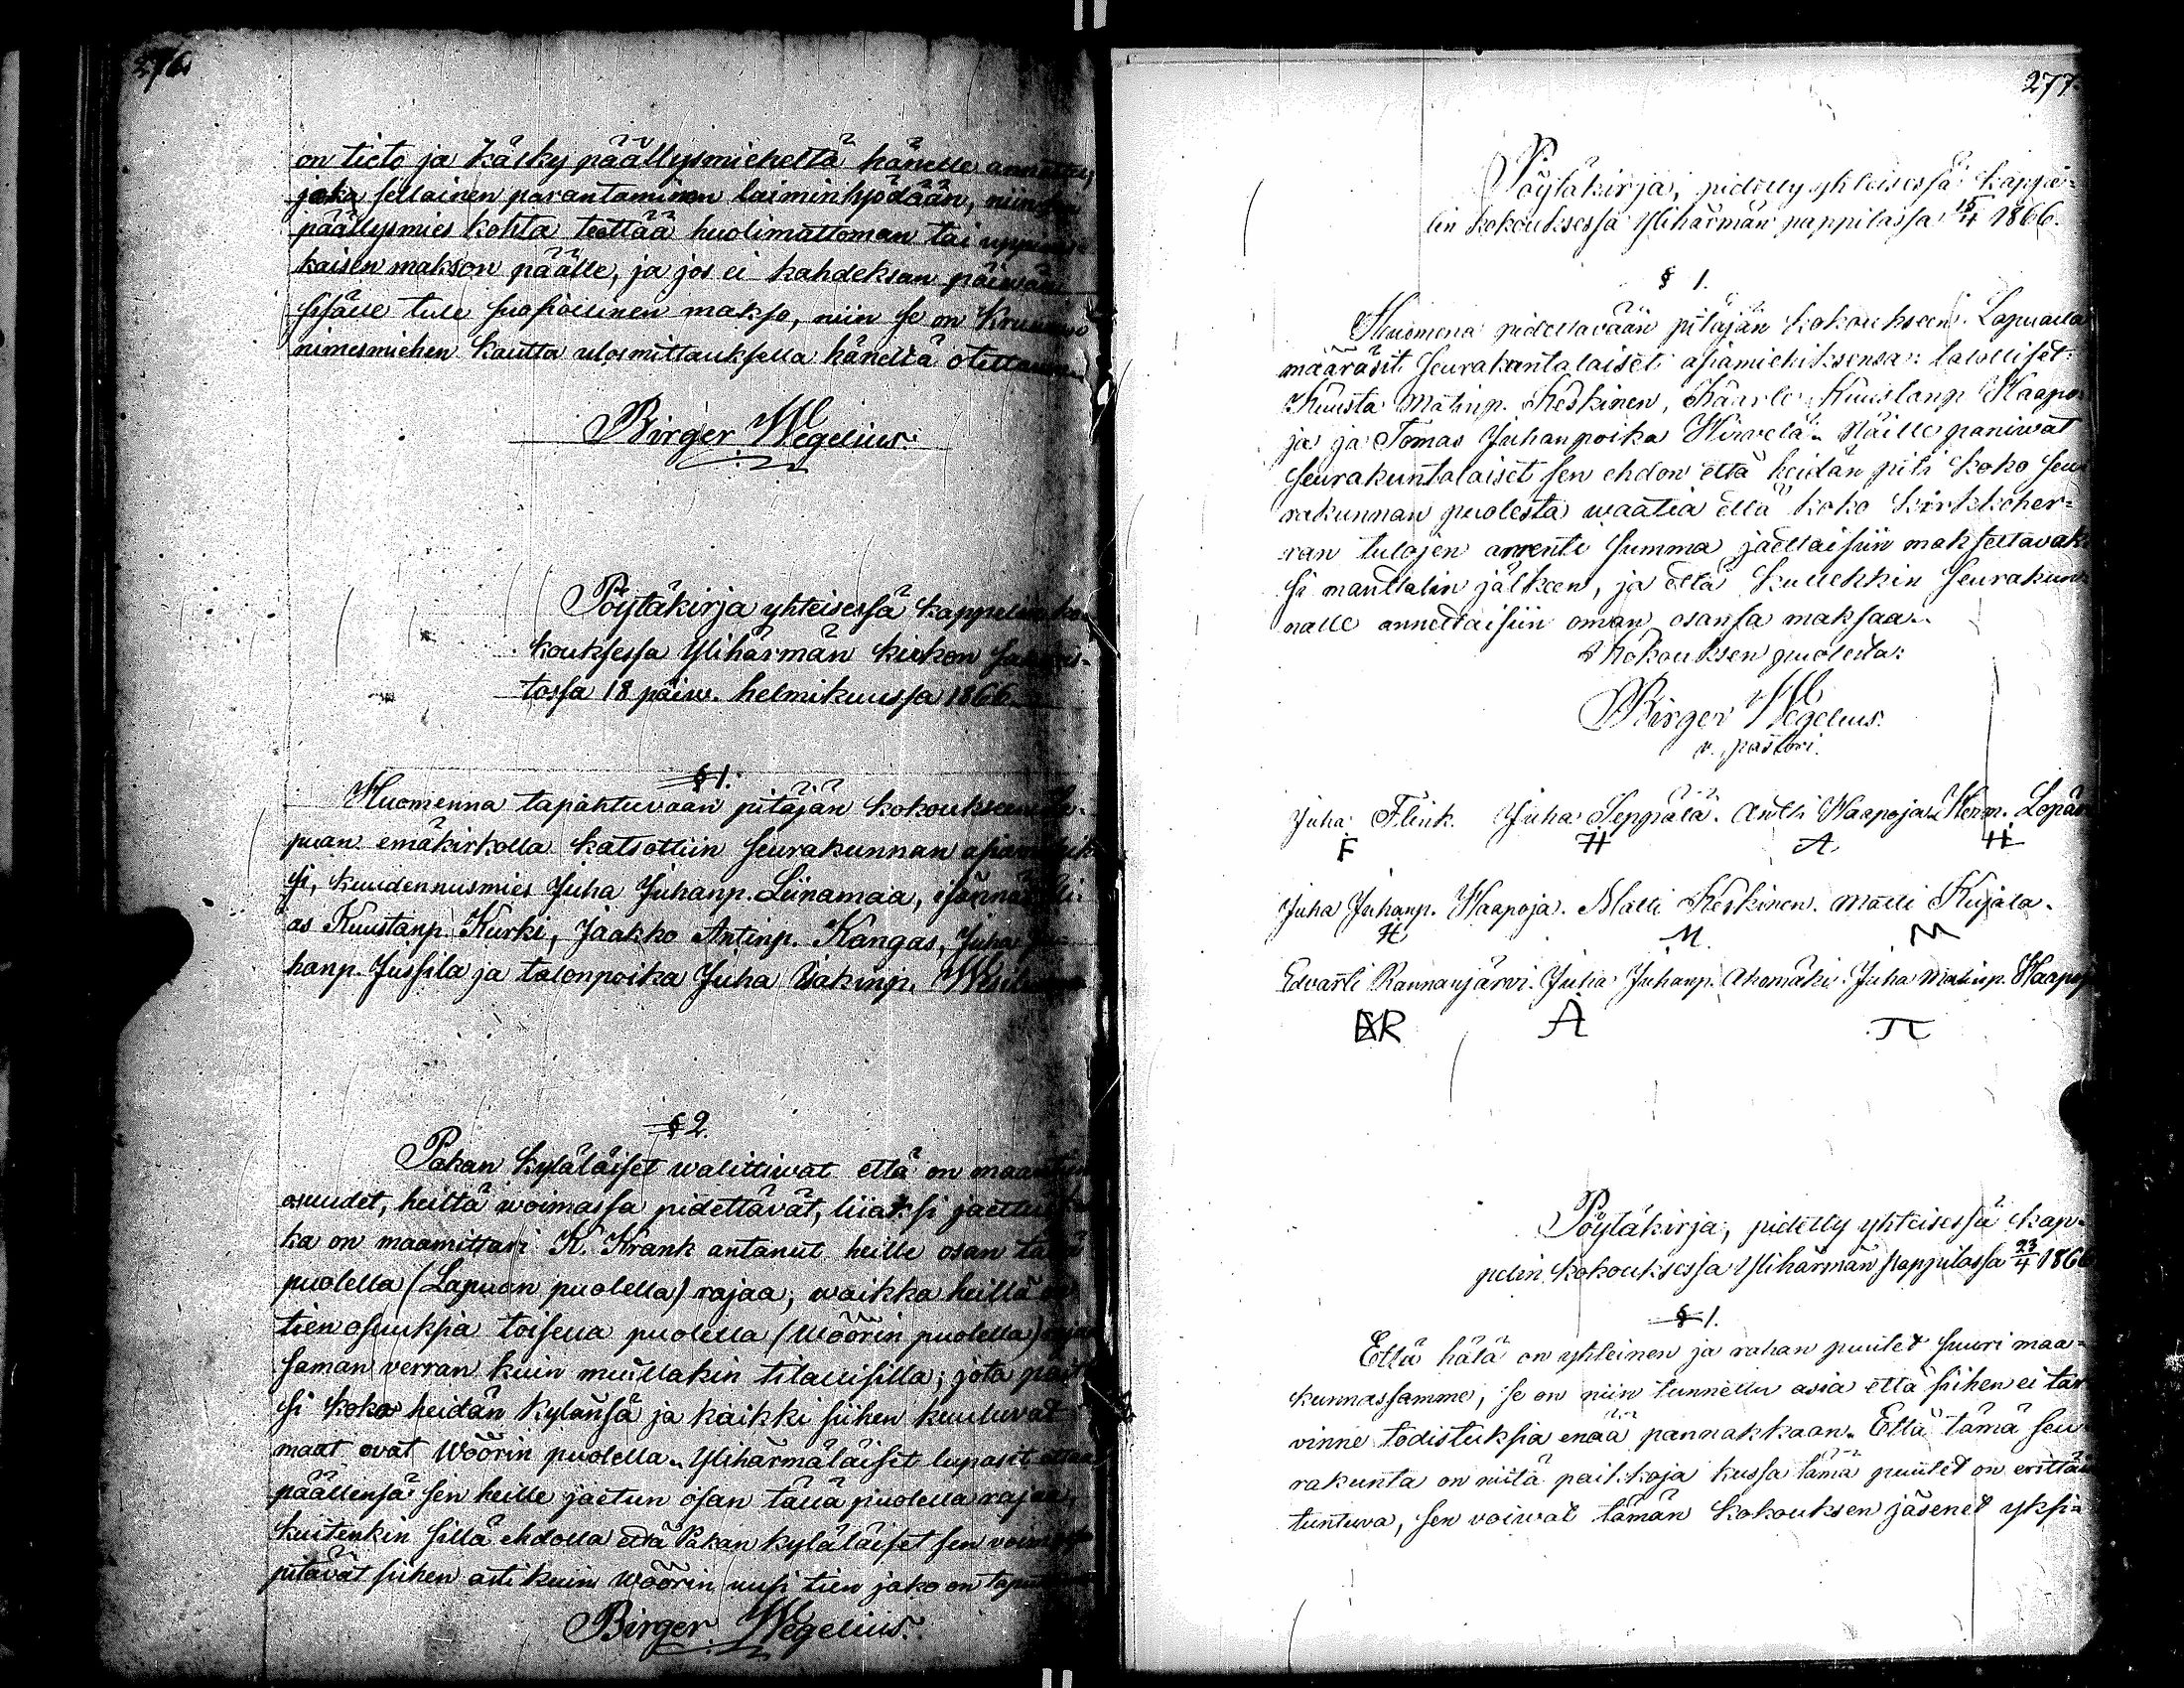 276.
on tieto ja käsky päällysmieheltä hänelle annettu,
joka sellainen parantaminen laiminlyödään, niin
päällysmies kohta teettää huolimattoman tai
kaisen makson päälle, ja jos ei kahdeksan päiwän
sisälle tule suosiollinen makso, niin se on Kruunun
nimesmiehen kautta ulosmittauksella häneltä otettawa.
Birger Wegelius.
Pöytäkirja yhteisessä kappelin ko-
kouksessa Ylihärmän kirkon
tossa 18 päiw. helmikuussa 1866.
§ 1.
Huomenna tapahtuvaan pitäjän kokoukseen La-
puan emäkirkolla katsottiin seurakunnan asiamiehik-
si, kuudennusmies Juha Juhanp. Liinamaa, isännät
as Kuustanp. Kurki, Jaakko Antinp. Kangas, Juha Ju-
hanp. Jussila ja talonpoika Juha Isakinp.
§ 2.
Pakan kyläläiset walittiwat että on maantien
osuudet, heiltä woimassa pidettävät, liiaksi jaettu,
ka on maamittari K. Krank antanut heille osan tällä
puolella (Lapuan puolella) rajaa, waikka heillä on
tien osuuksia toisella puolella (Wöörin puolella) rajaa
saman verran kuin muillakin tilallisilla; jota
si koko heidän kylänsä ja kaikki siihen kuuluvat
maat ovat Wöörin puolella. Ylihärmäläiset lupasit ottaa
päällensä sen heille jaetun osan tällä puolella rajaa,
kuitenkin sillä ehdolla että Pakan kyläläiset sen voimassa
pitävät siihen asti kuin Wöörin uusi tien jako on
Birger Wegelius.
277.
Pöytäkirja, pidetty yhteisessä kappe-
lin kokouksessa Ylihärmän pappilassa 15/4 1866.
§ 1.
Huomena pidettävään pitäjän kokoukseen Lapualla
määräsit seurakuntalaiset asiamiehiksensa: talolliset
Kuusta Matinp. Keskinen, Kaarle Kuustanp Haapo-
ja ja Tomas Juhanpoika Hirvelä. Näille paniwat
seurakuntalaiset sen ehdon että heidän piti koko seu-
rakunnan puolesta waatia että koko kirkkoher-
ran tulojen arrenti summa jaettaisiin maksettavak-
si manttalin jälkeen, ja että kullekkin seurakun-
nalle annettaisiin oman osansa maksaa.
Kokouksen puolesta:
Birger Wegelius.
v. pastori.
Juha Flink. Juha Seppälä. Antti Haapoja. Herm. Lopär
F H A H
Juha Juhanp. Haapoja. Matti Keskinen. Matti Kujala.
H M. M
Edvartti Rannanjärvi. Juha Juhanp. Ahomäki. Juha Matinp. Haapoj
ER A π
Pöytäkirja, pidetty yhteisessä kap-
pelin kokouksessa Ylihärmän pappilassa 23/4 1866
§ 1.
Että hätä on yhteinen ja rahan puutet suuri maa-
kunnassamme, se on niin tunnettu asia että siihen ei tar
vinne todistuksia enää pannakkaan. Että tämä seu-
rakunta on niitä paikkoja kussa tämä puutet on erittäin
tuntuva, sen voiwat tämän kokouksen jäsenet yksi-